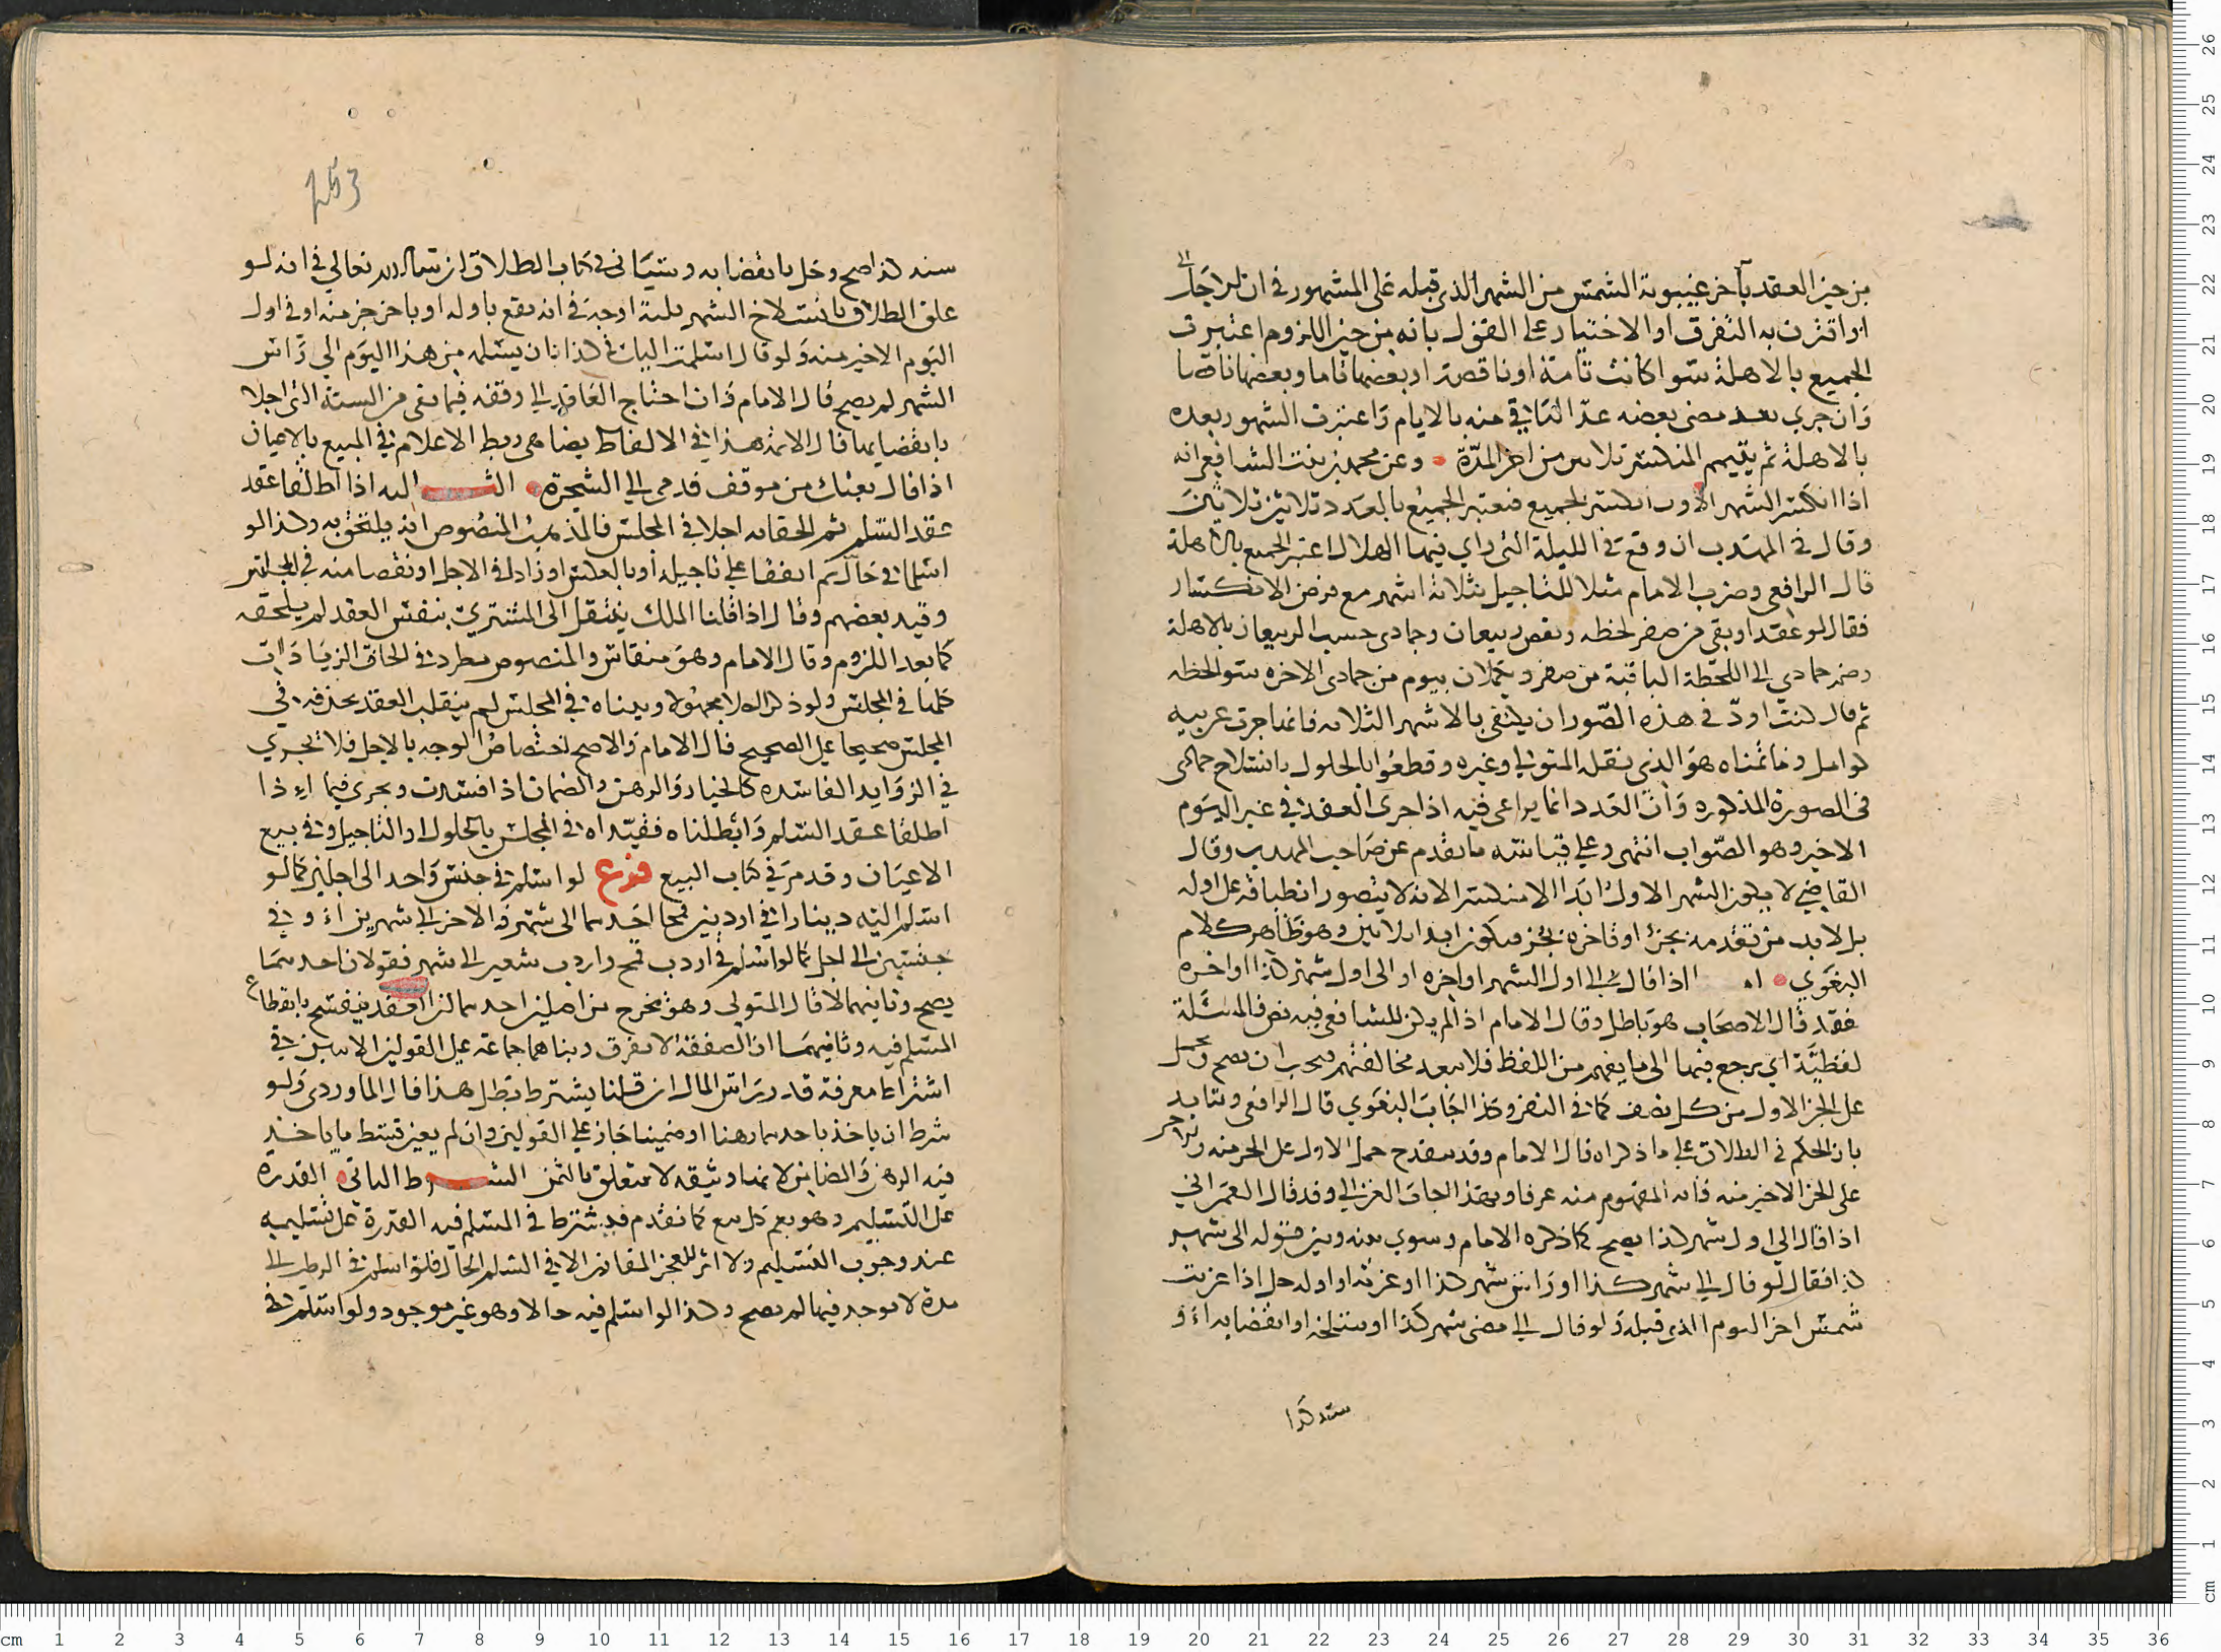 من حين العقد بآخر غيبوبة الشمس من الشهر الذي قبله على المشهور في ان الاجل
اذا اقترن به التفرق او الاختيار على القول بانه من حين اللزوم اعتبرت
الجميع بالاهلة سوا كانت تامة او ناقصة او بعضها تاما وبعضها ناقصا
وان جرى بعد مضى بعضه عد الباقي منه بالايام واعتبرت الشهور بعده
بالاهلة ثم يتمم المنكسر ثلاثين من اخر المدة وعن محمد بن بنت الشافعي انه
اذا انكسر الشهر الاول انكسر الجميع فيعتبر الجميع بالعدد ثلاثين ثلاثين
وقال في المهذب ان وقع في الليلة التي راي فيها الهلال اعتبر الجميع بالاهلة
قال الرافعي وضرب الامام مثلا للتاجيل بثلاثة اشهر مع فرض الانكسار
فقال لو عقدا وبقى من صفر لحظه ونقص ربيعان وجمادى حسب الربيعان بالاهلة
وضم جمادي الى اللحظة الباقية من صفر ويكملان بيوم من جمادى الاخره سوى لحظه
ثم قال كنت اود في هذه الصور ان يكتفى بالاشهر الثلاثه فانها جرت عربيه
كوامل وما تمناه هو الذي نقله المتولي وغيره وقطعوا بالحلول بانسلاخ جمادى
في الصورة المذكوره وان العدد انما يراعى فيه اذا جرى العقد في غير اليوم
الاخير وهو الصواب انتهى وعلى قياسه ما تقدم عن صاحب المهذب وقال
القاضي لا يكون الشهر الاول ابدا الا منكسر الانه لا يتصور انطباقه على اوله
بل لا بد من تقدمه بجزء او تاخره بجزء فيكون ابدا ثلاثين وهو ظاهر كلام
البغوي اه اذا قال الى اول الشهر او اخره او الى اول شهر كذا او اخره
فقد قال الاصحاب هو باطل وقال الامام اذا لم يكن للشافعي فيه نص فالمسئلة
لفظية اي يرجع فيها الى ما يفهم من اللفظ فلا يبعد مخالفتهم فيجب ان يصح ويحمل
على الجز الاول من كل نصف كما في النفر وكذا اجاب البغوي قال الرافعي وتتايد
بان الحكم في الطلاق على ما ذكراه قال الامام وقد ينقدح حمل الاول على الجز منه
على الجز الاخير منه فانه المفهوم منه عرفا وبهذا اجاب الغزالي وقد قال العمراني
اذا قال الى اول شهر كذا يصح كما ذكره الامام وسوى بينه وبين قوله الى شهر
كذا فقال لو قال الى شهر كذا او راس شهر كذا او غرته او اوله حل اذا غربت
شمس اخر اليوم الذي قبله ولو قال الى مضى شهر كذا او سلخه او انقضايه او
سنه كذا
سنه كذا صح وحل بانقضايه وسياتي في كتاب الطلاق ان شا الله تعالى في انه لو
علق الطلاق بانسلاخ الشهر ثلاثة اوجه في انه يقع باوله او باخر جز منه او في اول
اليوم الاخير منه ولو قال اسلمت اليك في كذا بان يسلمه من هذا اليوم الى راس
الشهر لم يصح قال الامام وان احتاج العاقد الى وقفه فيما بقى من السنة التي اجلا
بانقضايها قال الايمة هذا في الالفاظ يضاهي ربط الاعلام في المبيع بالاعيان
اذا قال بعتك من موقف قدمي الى الشجرة الثـــالثه اذا اطلقا عقد
عقد السلم ثم الحقا به اجلا في المجلس فالمذهب المنصوص انه يلتحق به وكذا لو
اسلما في حال ثم اتفقا على تاجيله او بالعكس او زاد في الاجل او نقصا منه في المجلس
وقيد بعضهم وقال اذا قلنا الملك ينتقل الى المشتري بنفس العقد لم يلحقه
كما بعد اللزوم وقال الامام وهو منقاس والمنصوص مطرد في الحاق الزيادات
كلها في المجلس ولو ذكرا اجلا مجهولا وبيناه في المجلس لم ينقلب العقد بحذفه في
المجلس صحيحا على الصحيح قال الامام والاصح اختصاص الوجه بالاجل فلا يجري
في الزوايد الفاسده كالخيار والرهن والضمان اذا فسدت ويجري فيما اذا
اطلقا عقد السلم وابطلناه فقيداه في المجلس بالحلول او التاجيل وفي بيع
الاعيان وقد مر في كتاب البيع فرع لو اسلم في جنس واحد الى اجلين كما لو
اسلم اليه دينارا في اردبين قمحا احدهما الى شهر والاخر الى شهرين او في
جنسين الى اجل كما لو اسلم في اردب قمح واردب شعير الى شهر فقولان احدهما
يصح وثانيهما لا قال المتولي وهو مخرج من اصلين احدهما ان العقد ينفسخ بانقطاع
المسلم فيه وثانيهما ان الصفقة لا تفرق وبناهما جماعة على القولين الاتيين في
اشتراط معرفة قدر راس المال ان قلنا يشترط بطل هذا قال الماوردي ولو
شرط ان ياخذ باحدهما رهنا او ضمينا جاز على القولين وان لم يعين قسط ما ياخذ
فيه الرهن والضامن لانهما وثيقه لا تتعلق بالثمن الشـــرط الثاني القدرة
على التسليم وهو يعم كل بيع كما تقدم فيشترط في المسلم فيه القدرة على تسليمه
عند وجوب التسليم ولا اثر للعجز المقارن الا في السلم الحال فلو اسلم في الرطب الى
مدة لا يوجد فيها لم يصح وكذا لو اسلم فيه حالا وهو غير موجود ولو اسلم في